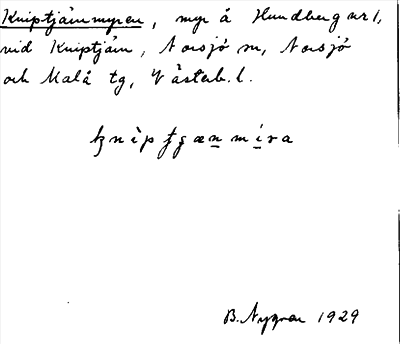 Kniptjärnmyren, myr å Hundberg nr 1,
vid Kniptjärn, Norsjö sn, Norsjö
och Malå tg, Västerb. l.
B. Nygren 1929